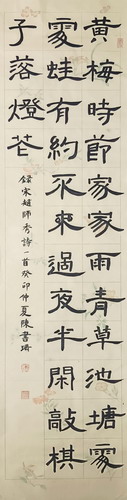 黃梅時節家家雨青草池塘處
處蛙有約不來過夜半閑敲棋
子落燈花
録宋趙師秀詩一首癸卯仲夏陳書琦